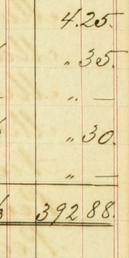 4.25.
" 35.
" —
" 30.
" —
392 88.